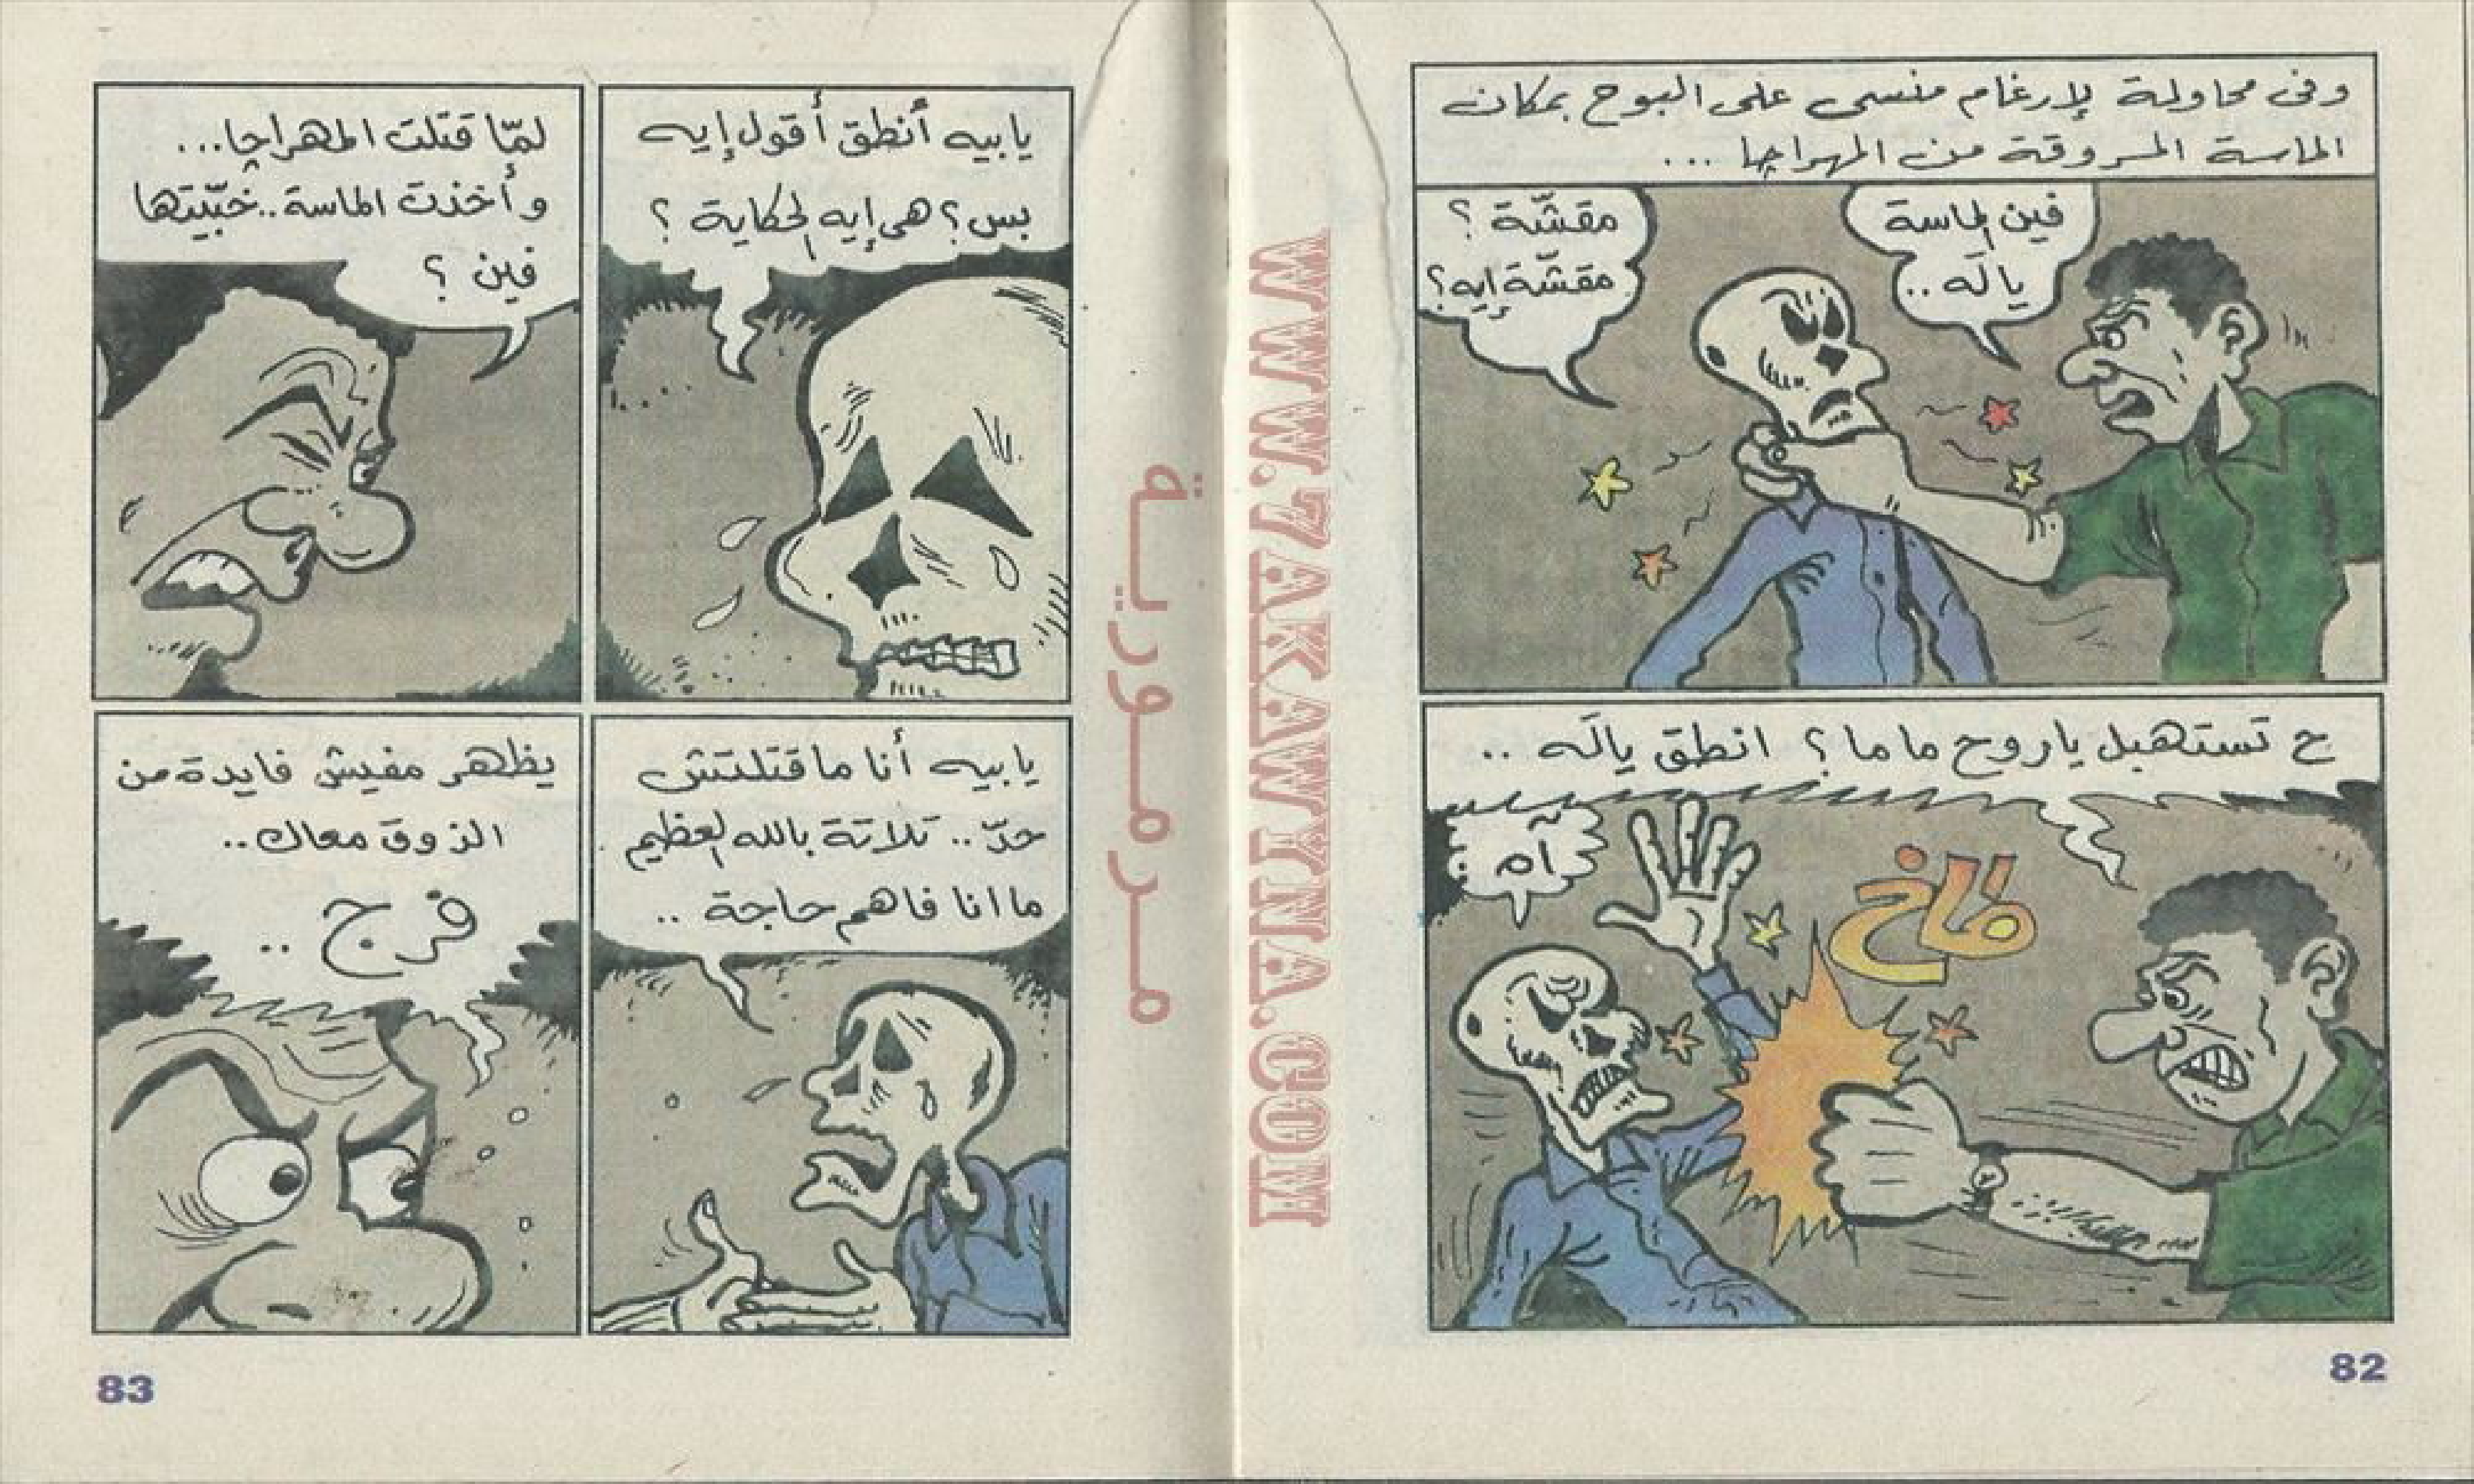 وفى محاولة لإرغام منسى على البوح بمكان
الماسة المسروقة من المهراچا ...
فين الماسة
يالَه ..
مقشّة ؟
مقشّة إيه ؟
ح تستهبل ياروح ماما ؟ انطق يالَه ..
آه
طاخ
82
يابيه أنطق أقول إيه
بس ؟ هى إيه الحكاية ؟
لمّا قتلت المهراچا ...
وأخذت الماسة .. خبّيتها
فين ؟
يابيه أنا ماقتلتش
حدّ .. تلاتة بالله العظيم
ما انا فاهم حاجة ..
يظهر مفيش فايدة من
الذوق معاك ..
فرج ..
83
مرمورية
WWW.7AKAWYNA.COM